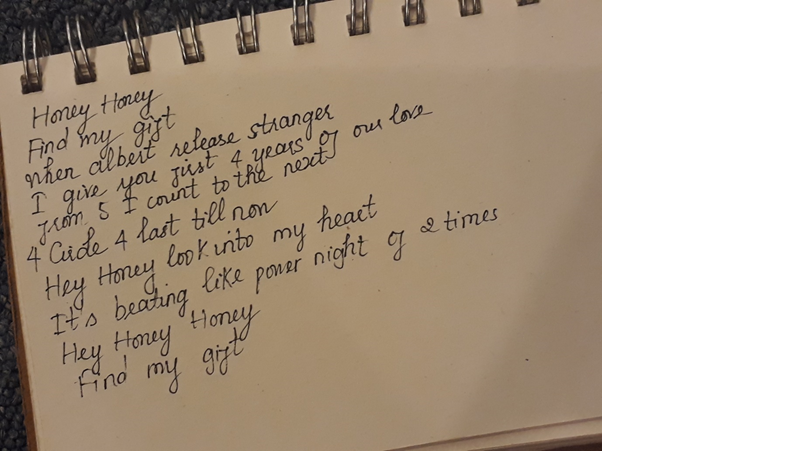 Honey Honey
Find my gift
when albert release stranger
I give you first 4 years of our love
from 5 I count to the next
4 Circle 4 last till now
Hey Honey look into my heart
It's beating like power night of 2 times
Hey Honey Honey
Find my gift